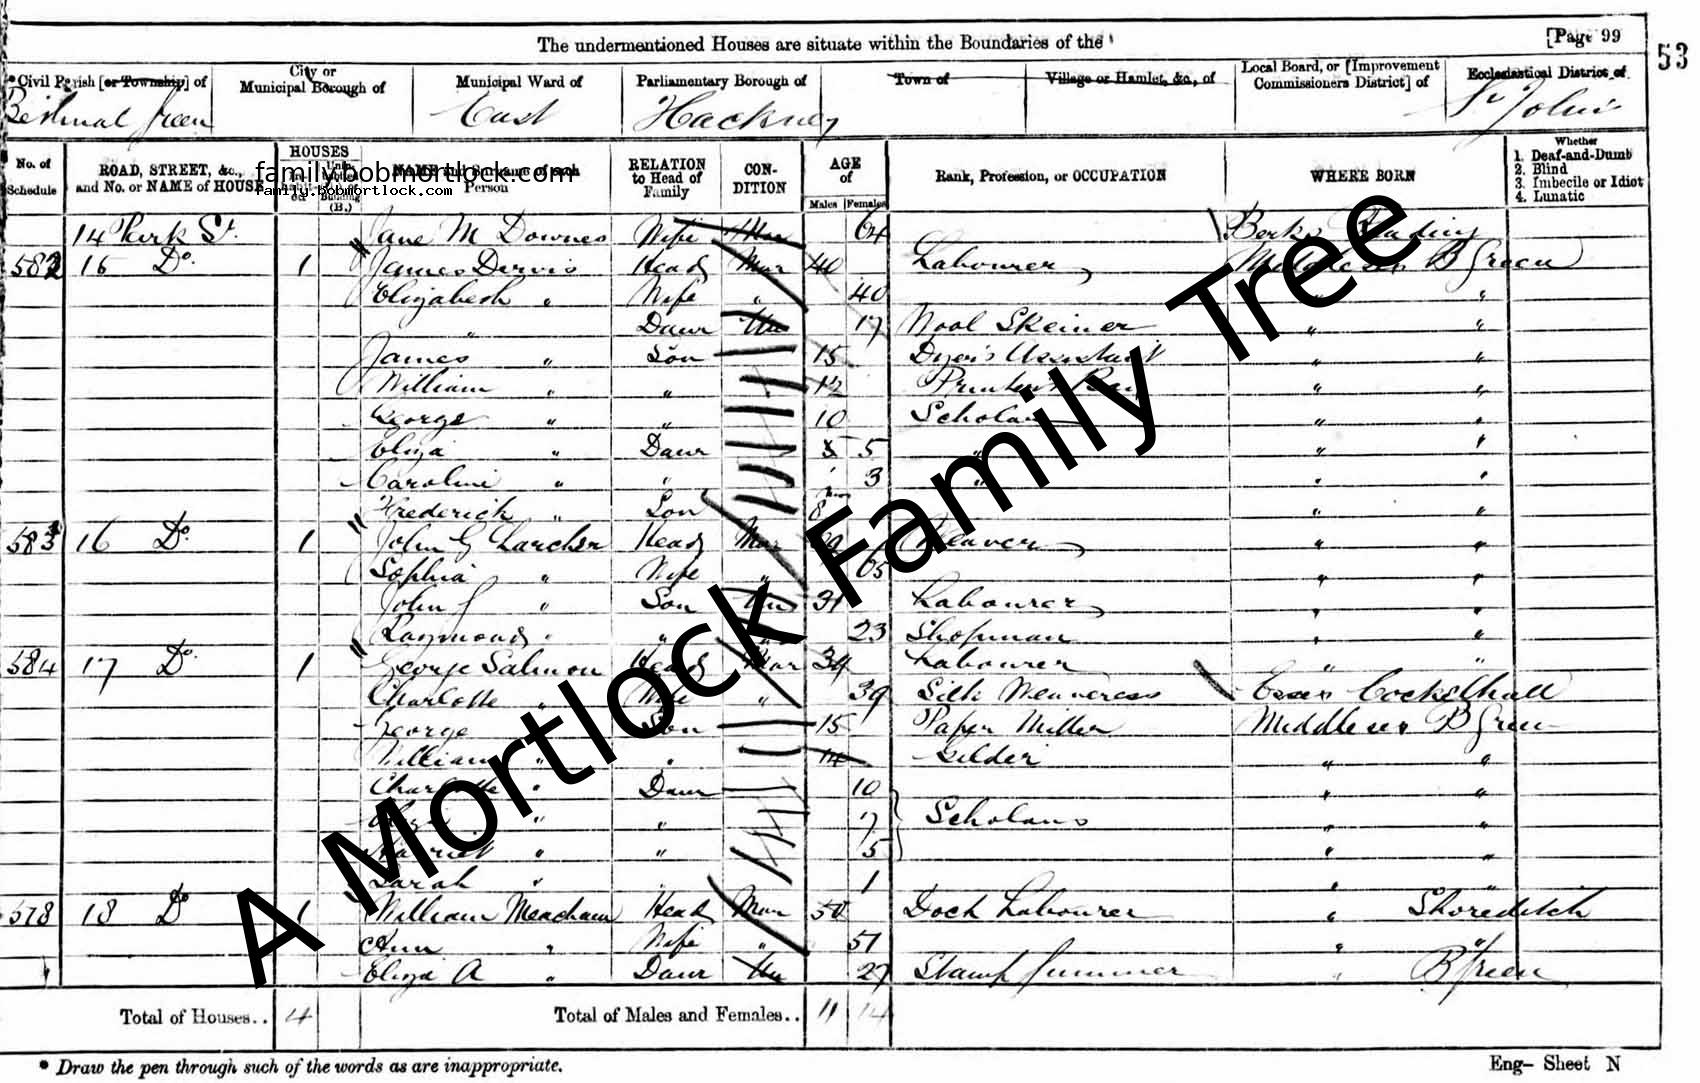 The undermentioned Houses are situate within the Boundaries of the
[Page 99
53
*Civil Parish [or Township] of
City or Municipal Borough of
Municipal Ward of
Parliamentary Borough of
Town of
Village or Hamlet, &c., of
Local Board, or [Improvement Commissioners District] of
Ecclesiastical District of
Bethnal Green East Hackney St John's
No. of Schedule
ROAD, STREET, &c., and No. or NAME of HOUSE
HOUSES
NAME and Surname of each Person
RELATION to Head of Family
CONDITION
AGE of
Males Females
Rank, Profession, or OCCUPATION
WHERE BORN
Whether
1. Deaf-and-Dumb
2. Blind
3. Imbecile or Idiot
4. Lunatic
familybobmortlock.com
family.bobmortlock.com
14 St. Jane M Downes Wife Mar 64 Berks Reading
582 15 Do. 1 James Head Mar 40 Labourer Middlesex B Green
Elizabeth " Wife " 40 " "
" Daur Un 17 Wool Skeiner " "
James " Son 15 Dyer's Assistant " "
William " " 12 Printer's Boy " "
George " " 10 Scholar " "
Eliza " Daur 5 " " "
Caroline " " 3 " " "
Frederick " Son 8 " "
583 16 Do. 1 John G Head Mar Weaver " "
Sophia " Wife " 65 " "
John " Son Un 31 Labourer " "
Raymond " " " 23 Shopman " "
584 17 Do. 1 George Salmon Head Mar 34 Labourer " "
Charlotte " Wife " 39 Silk Weaveress Essex
George Son 15 Paper Miller Middlesex B Green
William " " 14 Gilder " "
Charlotte " Daur 10 " "
" " 7 Scholars " "
Harriet " " 5 " "
Sarah " 1 " "
578 18 Do 1 William Meacham Head Mar 50 Dock Labourer " Shoreditch
Ann " Wife " 51 " "
Eliza A " Daur Un 27 Stamp Gummer " B Green
Total of Houses.. 4
Total of Males and Females.. 11 14
* Draw the pen through such of the words as are inappropriate.
Eng- Sheet N
A Mortlock Family Tree